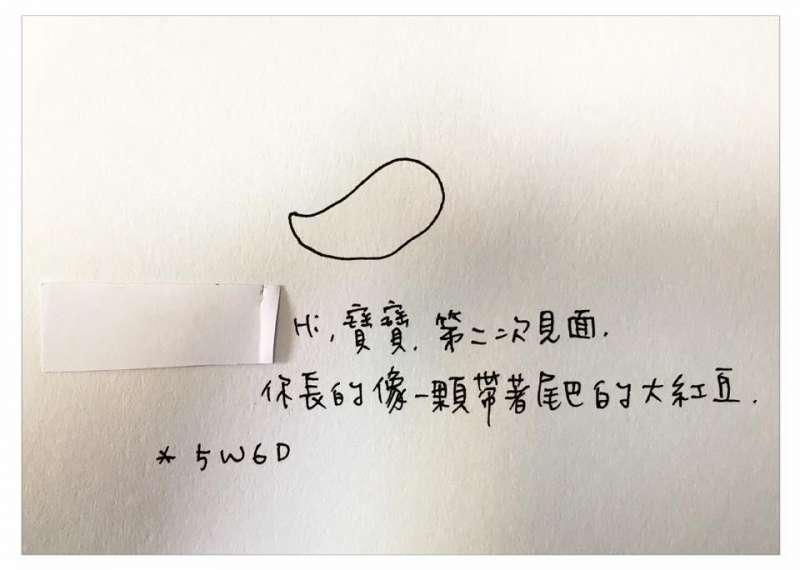 Hi, 寶寶, 第二次見面.
你長的像一顆帶著尾巴的大紅豆.
* 5W6D